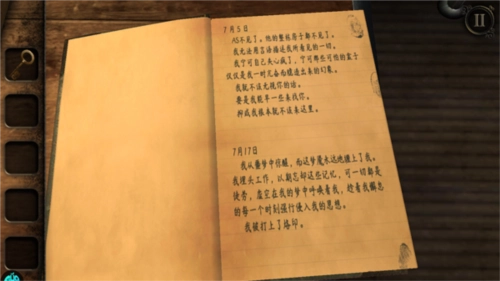 7月5日
AS不见了。他的整栋房子都不见了。
我无法用言语描述我所看见的一切。
我宁可自己失心疯了，宁可那些可怕的影子
仅仅是我一时咒昏而臆造出来的幻象。
我就不该无视你的话。
要是我能早一些来找你。
抑或我根本就不该来这里。
7月17日
我从噩梦中惊醒，而这梦魇永远地缠上了我。
我埋头工作，以期忘却这些记忆，可一切都是
徒劳，虚空在我的梦中呼唤着我，趁着我懈怠
的每一个时刻强行侵入我的思想。
我被打上了烙印。